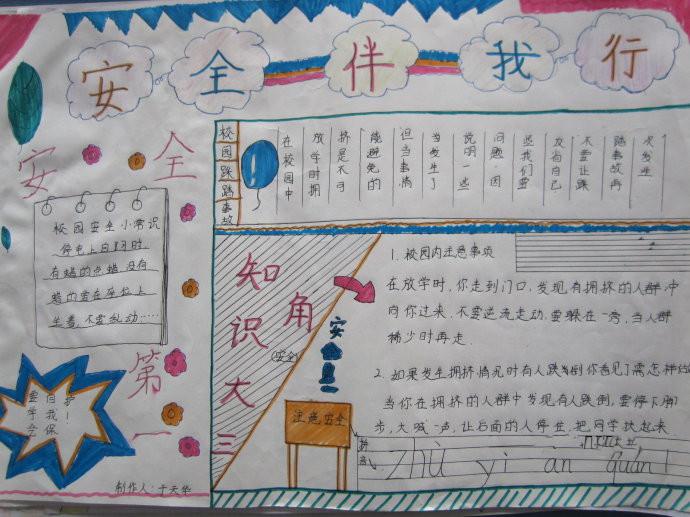 安全伴我行
安全第一
校园安全小常识
停电上自习时
有蜡的点蜡,没有
蜡的要在座位上
坐着,不要乱动……
要自护
学我!
全保
制作人:于天华
校园踩踏事故
在校园中
放学时拥
挤是不可
能避免的
但当事情
当发生了
说明一些
问题,因
此我们要
从自自己
不要让踩
踏事故再
次发生
知识大三角
(安全)
安全星
注意安全
1. 校园内注意事项
在放学时,你走到门口,发现有拥挤的人群冲
向你过来,不要逆流走动,要躲在一旁,当人群
稀少时再走.
2. 如果发生拥挤情况时有人跌倒你看见了需怎样做
当你在拥挤的人群中发现有人跌倒,要停下脚
步,大喊一声,让后面的人停止,把同学扶起来.
zhù yì ān quán!